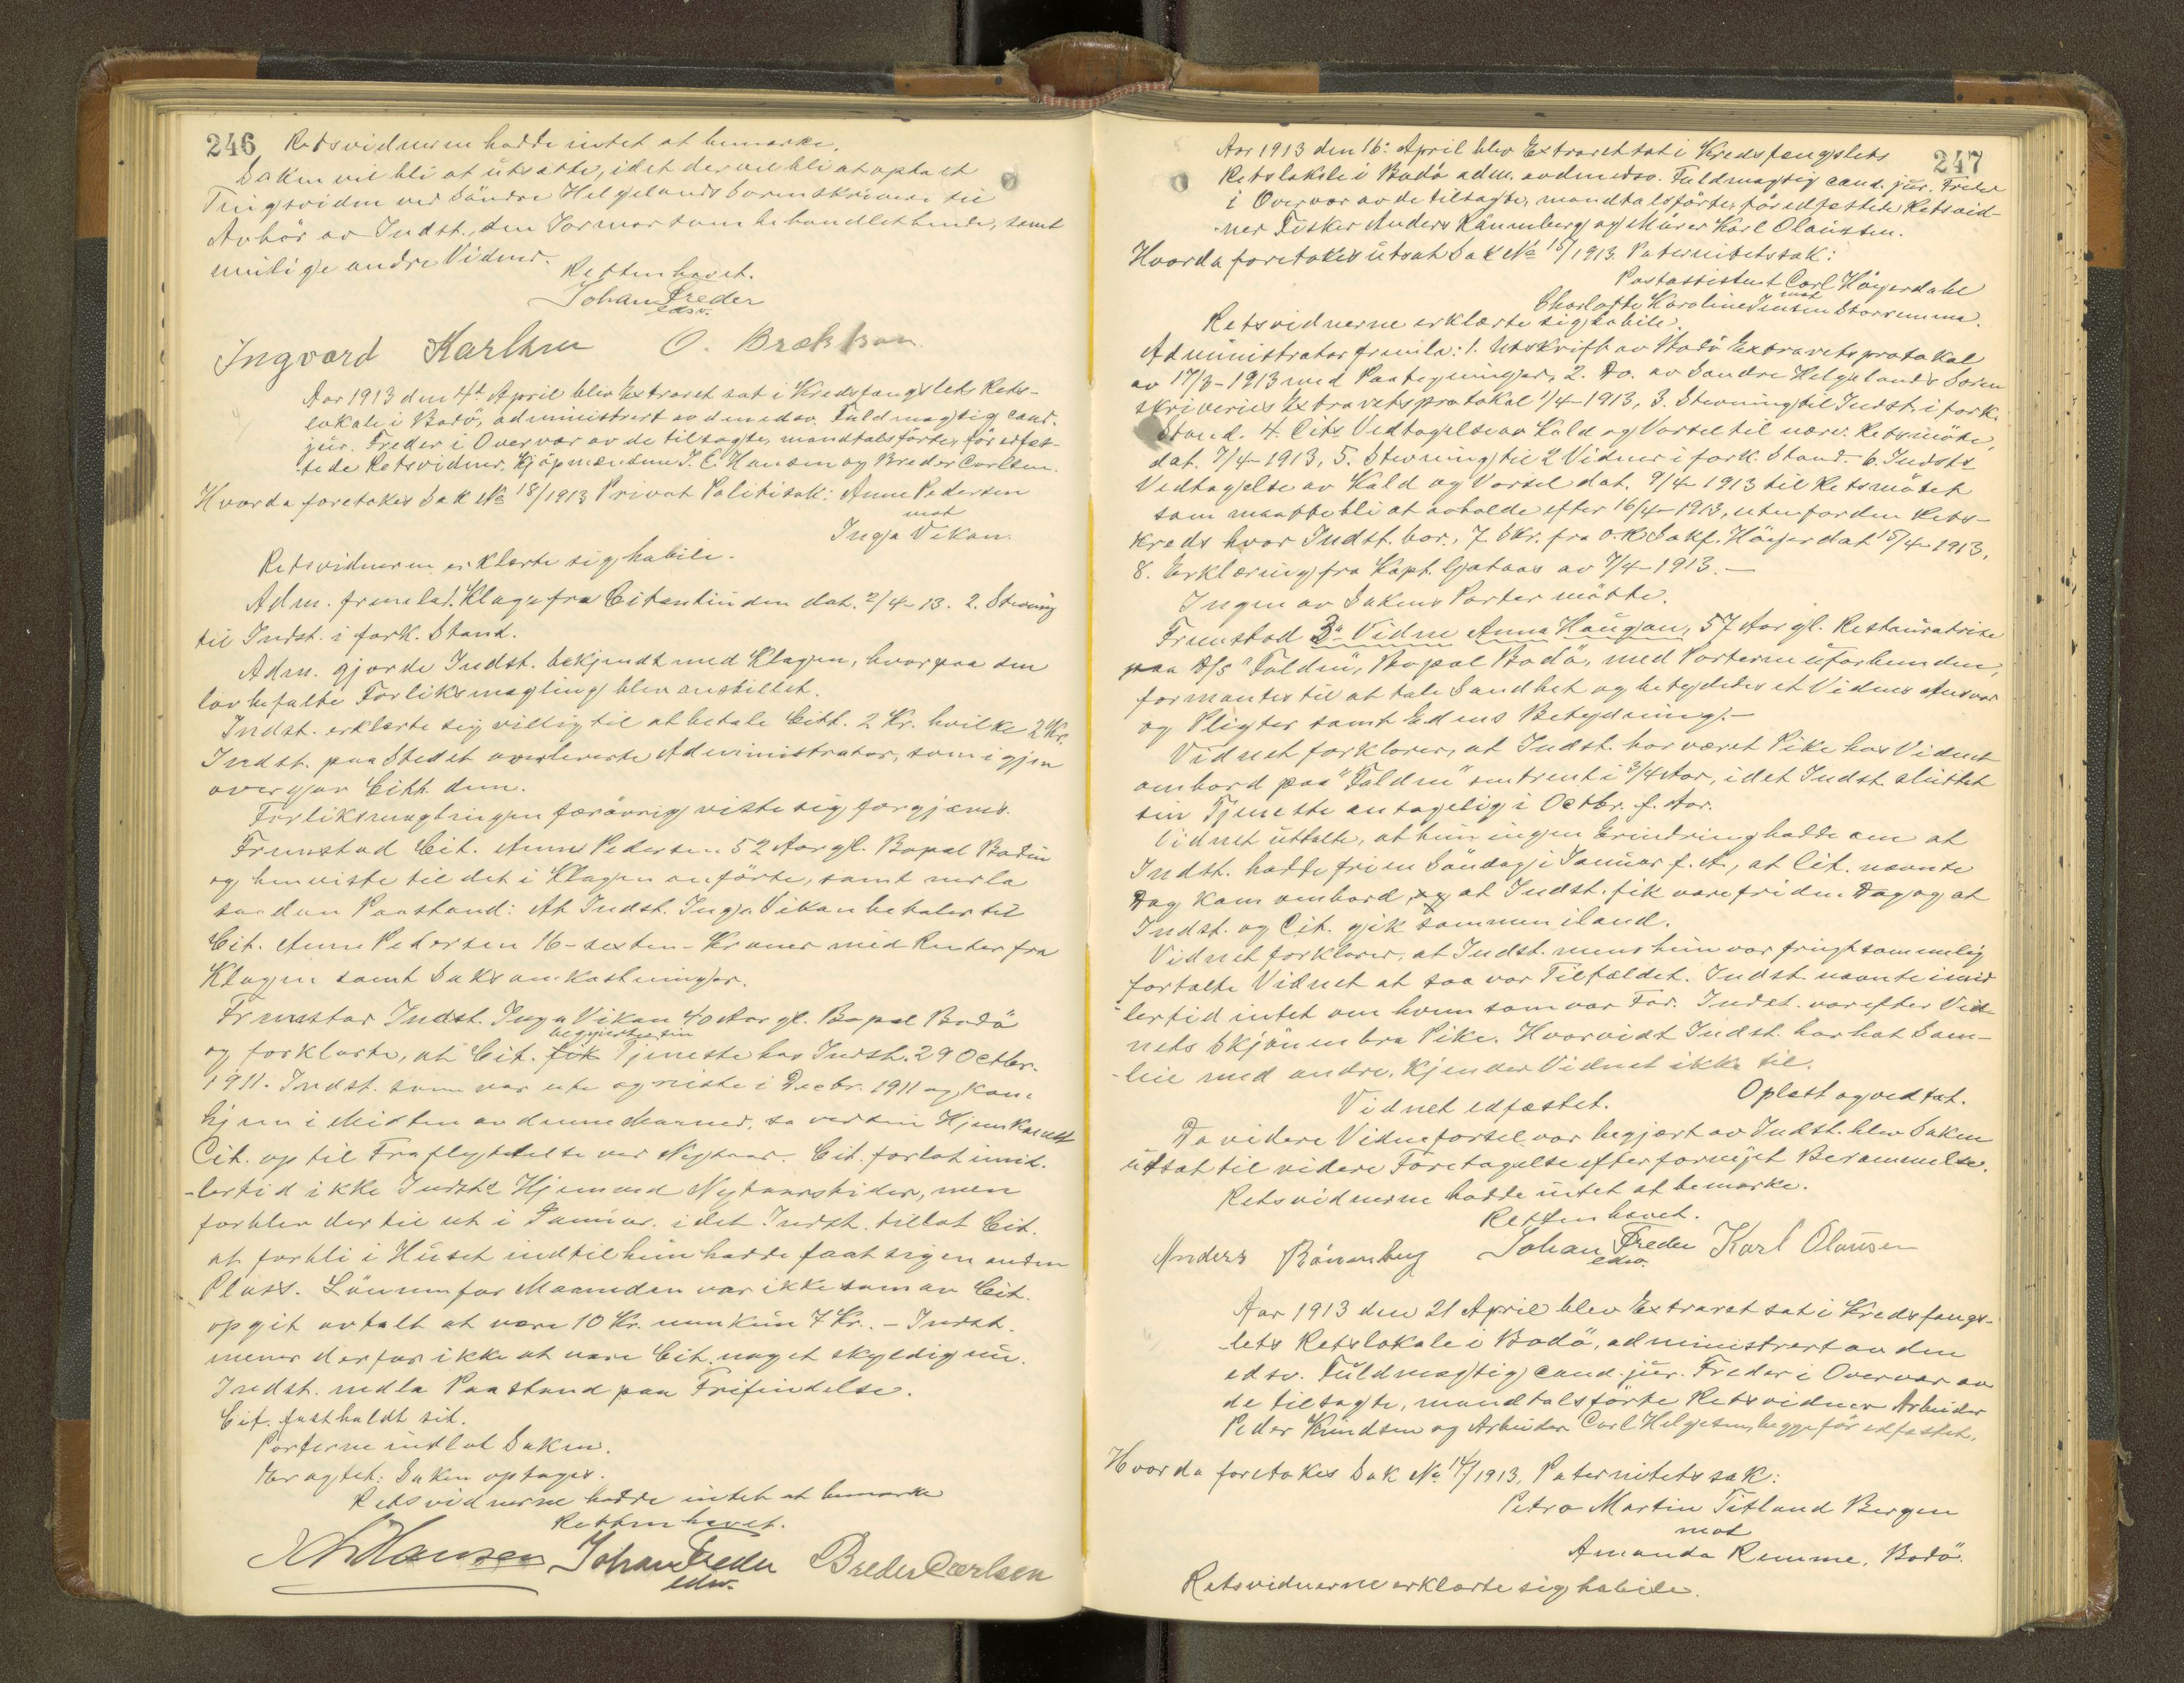 246 Retsvidnerne hadde intet at bemærke.
Saken vil bli at utsætte, idet der vil bli at opta et
Tingsvidne ved Söndre Helgelands Sorenskriveri til
Avhör av Indst., den Jormor som behandlet hende, samt
mulige andre Vidner.
Retten hævet.
Johan Freder
edsv.
Ingvard Karlsen O. Brækkan
Aar 1913 den 4de April blev Extraret sat i Kredsfængslets Rets-
lokale i Bodö, administrert av den edsv. Fuldmægtig cand.
jur. Freder i Overvær av de tilsagte, mandtalsförte, för edfæs-
tede Retsvidner, Kjöpmændene J. C. Hansen og Breder Carlsen.
Hvorda foretokes Sak No 18/1913 Privat Politisak: Anne Pedersen
mot
Inga Vikan.
Retsvidnerne erklærte sig habile.
Adm. fremla 1. Klage fra Citantinden dat. 2/4-13. 2. Stevning
til Indst. i fork. Stand.
Adm. gjorde Indst. bekjendt med Klagen, hvorpaa den
lovbefalte Forliksmægling blev anstillet.
Indst. erklærte sig villig til at betale Citt. 2 Kr. hvilke 2 Kr.
Indst. paa Stedet overleverte Administrator, som igjen
overgav Citt. dem.
Forliksmæglingen forövrig viste sig forgjæves.
Fremstod Cit. Anne Pedersen 52 Aar gl. Bopæl Bodin
og henviste til det i Klagen anförte, samt nedla
saadan Paastand: At Indst. Inga Vikan betaler til
Cit. Anne Pedersen 16-sexten-Kroner med Renter fra
Klagen samt Saksomkostninger.
Fremstod Indst. Inga Vikan 40 Aar gl. Bopæl Bodö
begyndte sin
og forklarte, at Cit. fik Tjeneste hos Indst. 29 Octbr.
1911. Indst. som var ute og reiste i Decbr. 1911 og kom
hjem i Midten av denne Maaned, sa ved sin Hjemkomst
Cit. op til Fraflyttelse ved Nytaar. Cit. forlot imid-
lertid ikke Indsts Hjem ved Nytaarstider, men
forblev der til ut i Januar, idet Indst. tillot Cit.
at forbli i Huset indtil hun hadde faat sig en anden
Plass. Lönnen for Maaneden var ikke som av Cit.
opgit avtalt at være 10 Kr. men kun 7 Kr. - Indst.
mener derfor ikke at være Cit. noget skyldig nu.
Indst. nedla Paastand paa Frifindelse.
Cit. fastholdt sit.
Parterne indlot Saken.
Eragtet: Saken optages.
Retsvidnerne hadde intet at bemærke
Retten hævet.
J C Hansen Johan Freder Breder Carlsen
edsv.
247
Aar 1913 den 16de April blev Extraret sat i Kredsfængslets
Retslokale i Bodö adm. av den edsv. Fuldmægtig cand. jur. Freder
i Overvær av de tilsagte, mandtalsförte, för edfæstede Retsvid-
ner Fisker Anders Rönnenberg og Murer Karl Olaussen.
Hvorda foretokes utsat Sak No 15/1913. Paternitetssak:
Postassistent Carl Höyerdahl
mot
Charlotte Karoline Jensen Storremma.
Retsvidnerne erklærte sig habile.
Administrator fremla: 1. Utskrift av Bodö Extraretsprotokol
av 17/3-1913 med Paategninger, 2. Do. av Söndre Helgelands Soren
skriveries Extraretsprotokol 1/4-1913, 3. Stevning til Indst. i fork.
Stand. 4. Cits Vedtagelse av Kald og Varsel til nærv. Retsmöte,
dat. 7/4-1913, 5. Stevning til 2 Vidner i fork. Stand. 6. Indsts
Vedtagelse av Kald og Varsel dat. 9/4-1913 til Retsmötet
som maatte bli at avholde efter 16/4-1913, utenfor den Rets-
kreds hvor Indst. bor., 7. Skr. fra o.r. Sakf. Höyer dat 15/4-1913,
8. Erklæring fra Kapt. Gataas av 7/4-1913.-
Ingen av Sakens Parter mötte.
Fremstod 3die Vidne Anna Haugan, 57 Aar gl. Restauratrice
paa D/S "Folden", Bopæl Bodö, med Parterne uforbunden,
formantes til at tale Sandhet og betydedes et Vidnes Ansvar
og Pligter samt Edens Betydning.-
Vidnet forklarer, at Indst. har været Pike hos Vidnet
ombord paa "Folden" omtrent i 3/4 Aar, idet Indst. sluttet
sin Tjeneste antagelig i Octbr. f. Aar.
Vidnet uttalte, at hun ingen Erindring hadde om at
Indst. hadde fri en Söndag i Januar f. A., at Cit. nævnte
Dag kom ombord, og at Indst. fik være fri den Dag og at
Indst. og Cit. gik sammen iland.
Vidnet forklarer, at Indst. mens hun var frugtsommelig
fortalte Vidnet at saa var Tilfældet. Indst. nævnte imid
lertid intet om hvem som var Far. Indst. var efter Vid-
nets Skjön en bra Pike. Hvorvidt Indst. har hat Sam-
leie med andre, kjender Vidnet ikke til.
Oplæst og vedtat.
Vidnet edfæstet.
Da videre Vidneförsel var begjært av Indst. blev Saken
utsat til videre Foretagelse efter fornyet Berammelse.
Retsvidnerne hadde intet at bemærke.
Retten hævet.
Anders Rönnenberg Johan Freder Karl Olausen
edsv.
Aar 1913 den 21 April blev Extraret sat i Kredsfængs-
lets Retslokale i Bodö, administrert av den
edsv. Fuldmægtig cand. jur. Freder i Overvær av
de tilsagte, mandtalsförte Retsvidner Arbeider
Peder Knudsen og Arbeider Carl Helgesen, begge för edfæstet.
Hvorda foretokes Sak No 14/1913, Paternitetssak:
Petro Martin Titland Bergen
mot
Amanda Remme, Bodö.
Retsvidnerne erklærte sig habile.